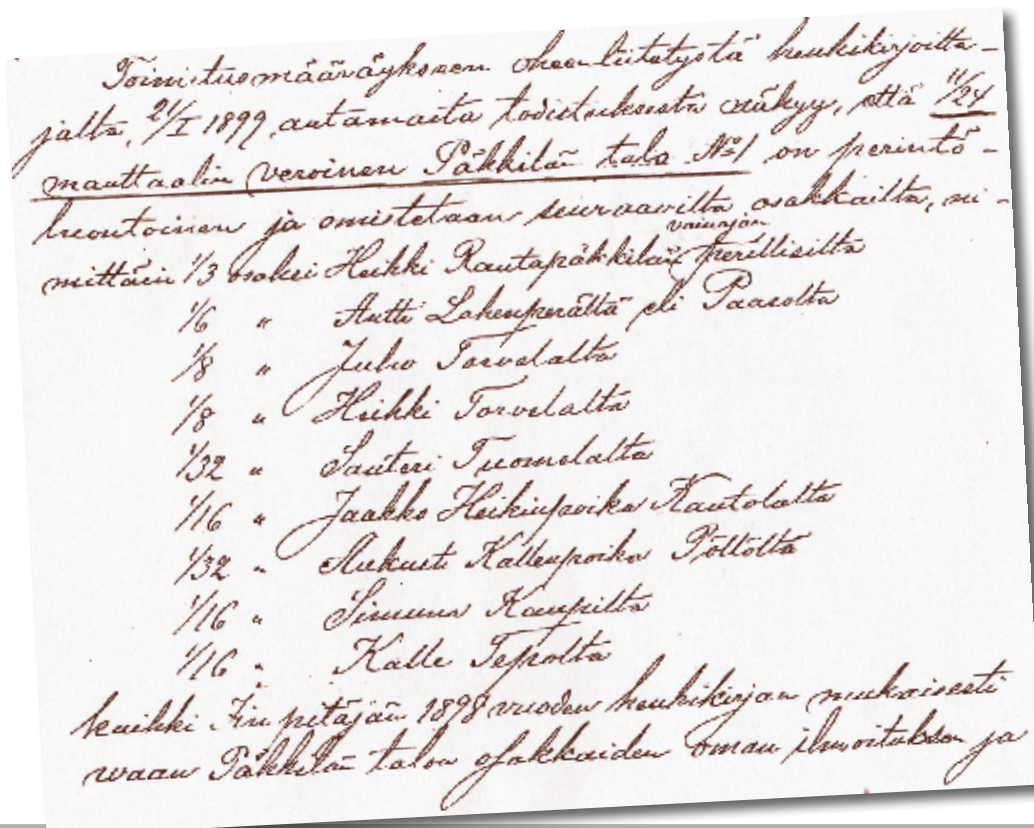 Toimitusmääräykseen oheenliitetystä henkikirjoitta-
jalta, 21/I 1899, antamasta todistuksesta näkyy, että 11/24
manttaalin veroinen Päkkilän talo №1 on perintö-
luontoinen ja omistetaan seuraavilta osakkailta, ni-
vainajan
mittäin 1/3 osaksi Heikki Rautapäkkilän perillisiltä
1/6 " Antti Lakenperältä eli Paavolta
1/8 " Juho Torvelalta
1/8 " Heikki Torvelalta
1/32 " Santeri Tuomelalta
1/16 " Jaakko Heikinpoika Kautolalta
1/32 " Aukusti Kallenpoika Pöllöltä
1/16 " Simuna Kaupilta
1/16 " Kalle Tepolta
kaikki Iin pitäjän 1898 vuoden henkikirjan mukaisesti
waan Päkkilän talon osakkaiden oman ilmoituksen ja